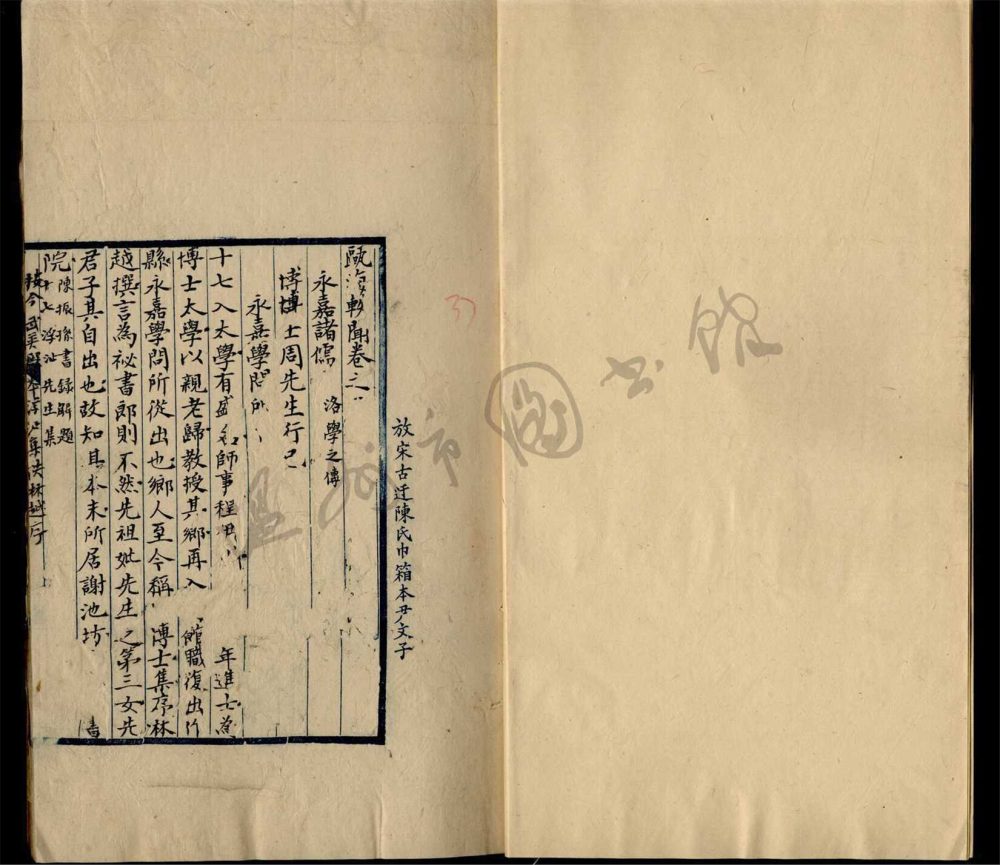 放宋古迂陳氏巾箱本尹文子
甌海軼聞卷之
永嘉諸儒 洛學之傳
博士周先生行己
永嘉學問所
十七入太學有盛名師事程 年進士
博士太學以親老歸教授其鄉再入 館職復出
縣永嘉學問所從出也鄉人至今稱 博士集序林
越撰言為祕書郎則不然先祖妣先生之第三女先
君子其自出也故知其本末所居謝池坊 書
院陳振孫書錄解題
浮沚先生集
按今武英殿本浮沚集
37
溫州市圖書館